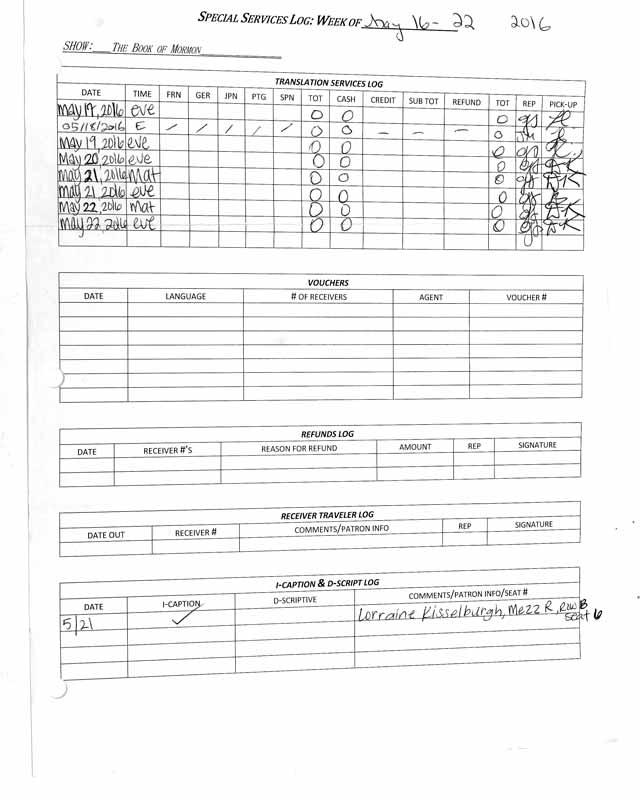 SPECIAL SERVICES LOG: WEEK OF May 16-22 2016
SHOW: THE BOOK OF MORMON
TRANSLATION SERVICES LOG
DATE TIME FRN GER JPN PTG SPN TOT CASH CREDIT SUB TOT REFUND TOT REP PICK-UP
May 17, 2016 eve 0 0 0
05/18/2016 E / / / / / 0 0 – – – 0
May 19, 2016 eve 0 0 0
May 20, 2016 eve 0 0 0
May 21, 2016 Mat 0 0 0
May 21, 2016 eve 0 0 0
May 22, 2016 Mat 0 0 0
May 22, 2016 eve 0 0 0
VOUCHERS
DATE LANGUAGE # OF RECEIVERS AGENT VOUCHER #
REFUNDS LOG
DATE RECEIVER #'S REASON FOR REFUND AMOUNT REP SIGNATURE
RECEIVER TRAVELER LOG
DATE OUT RECEIVER # COMMENTS/PATRON INFO REP SIGNATURE
I-CAPTION & D-SCRIPT LOG
DATE I-CAPTION D-SCRIPTIVE COMMENTS/PATRON INFO/SEAT #
5/21 ✓ Lorraine Kisselburgh, Mezz R, Row B
seat 6